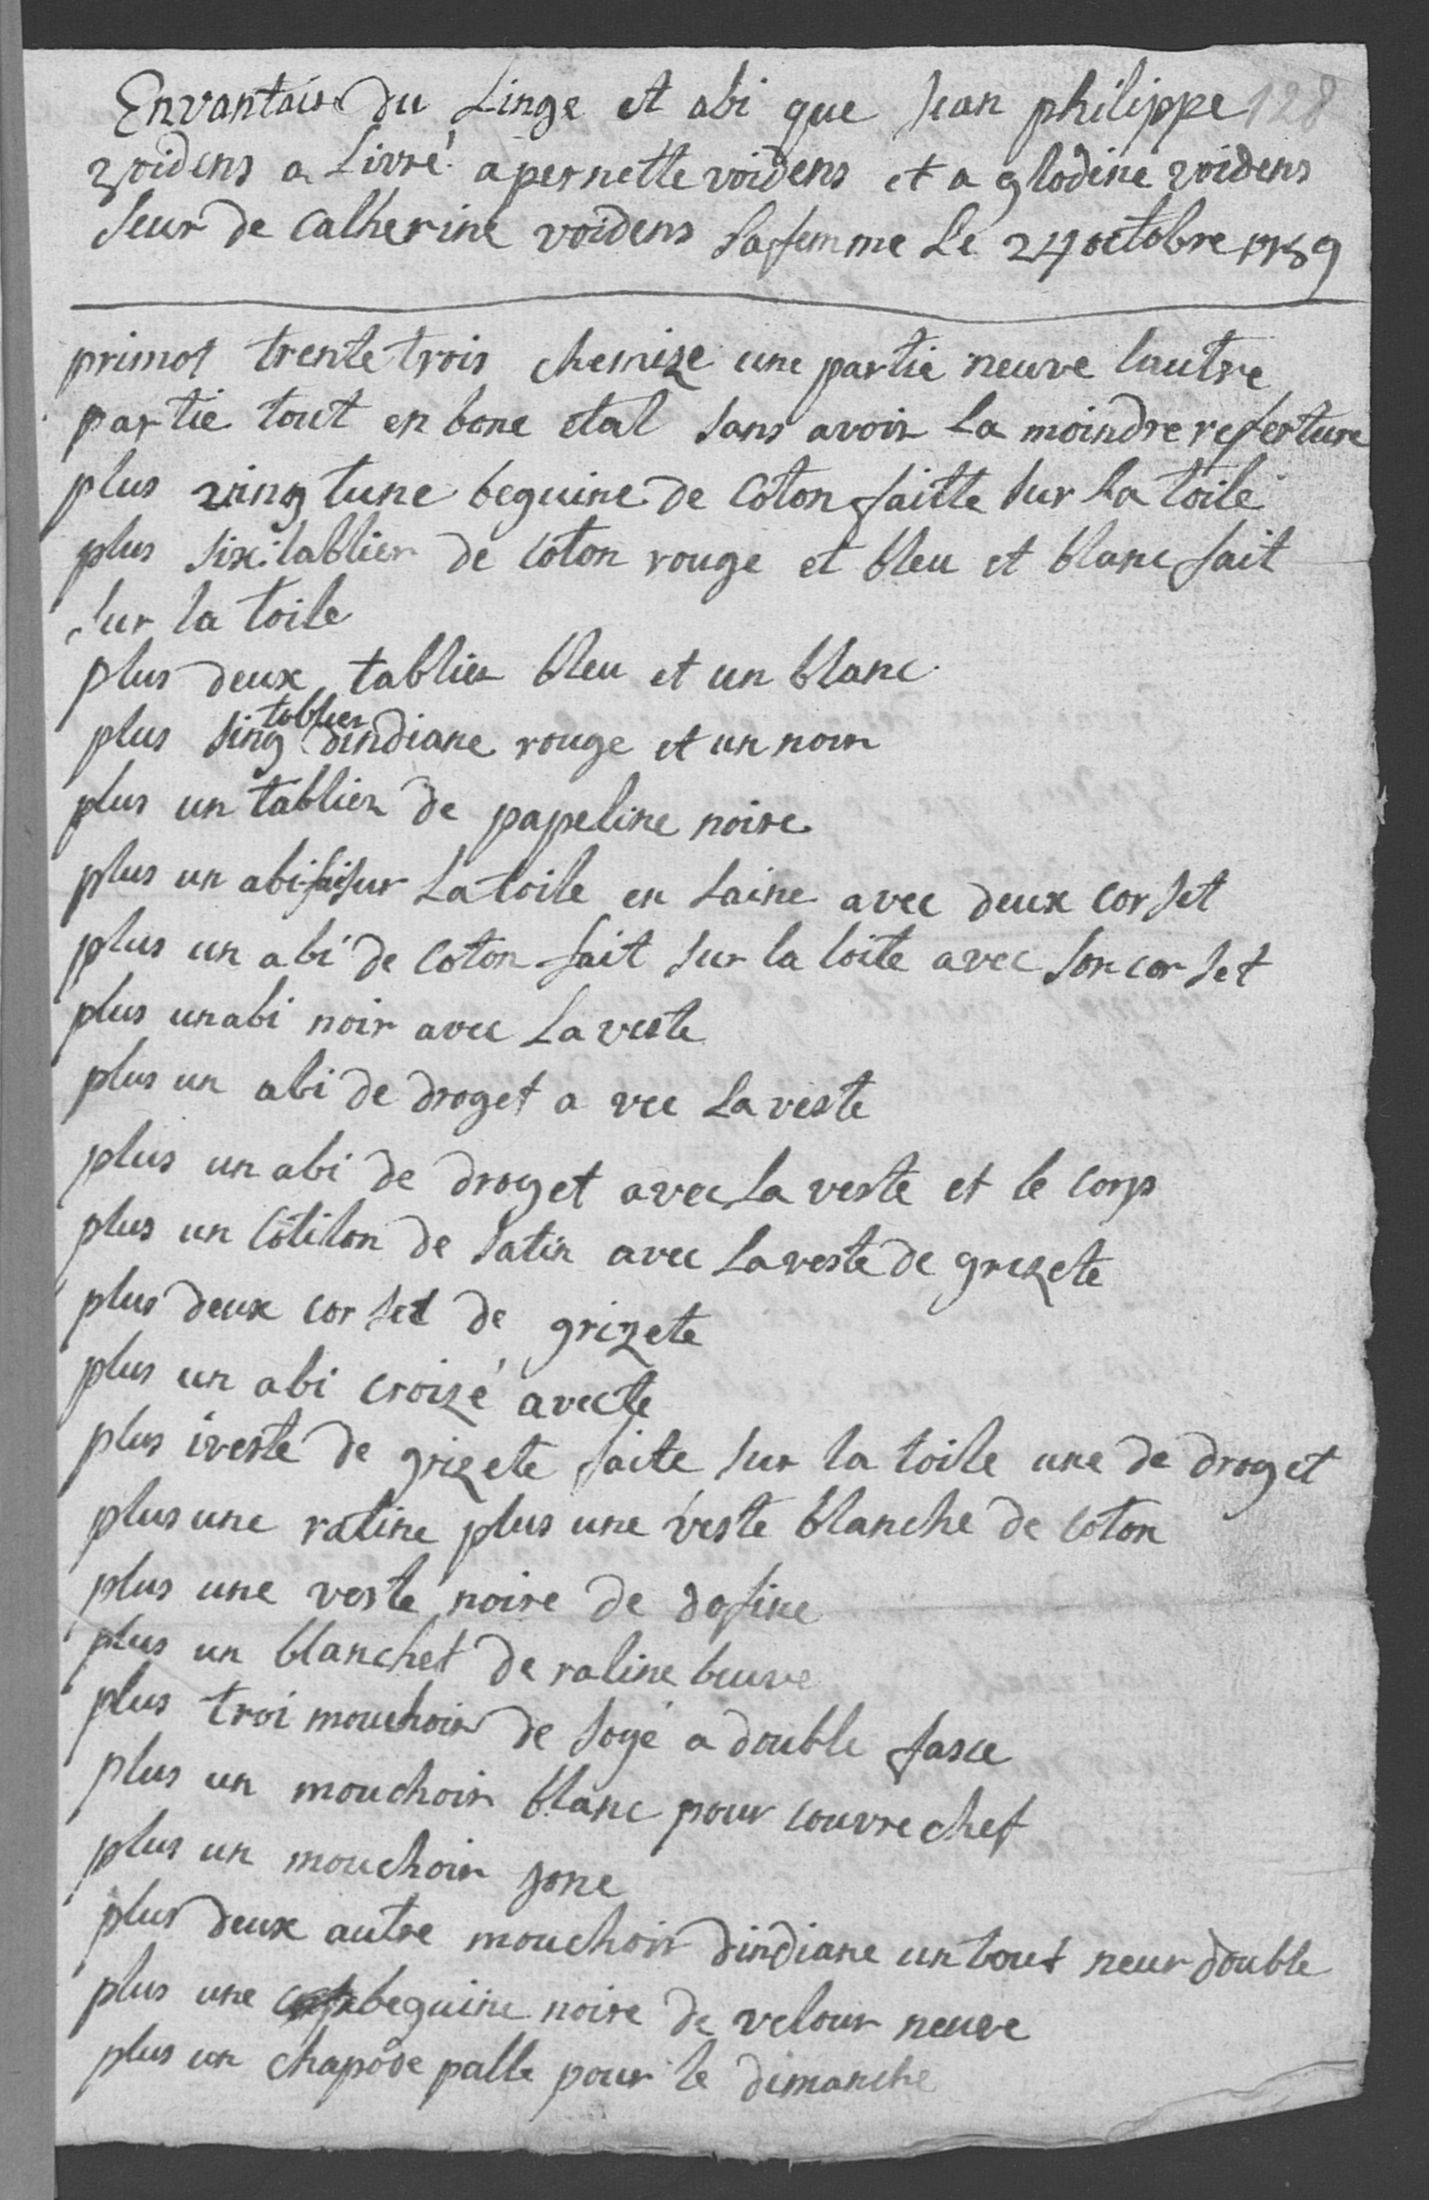 Envantair du Linge et abi que Jean philippe 128
voidens a Livré a pernette voidens et a glodine voidens
seur de catherine voidens sa femme Le 24 octobre 1789
primot trente trois chemize une partie neuve lautre
partie tout en bone etat sans avoir La moindre referture
plus vingtune beguine de coton faitte sur La toile
plus six tablier de coton rouge et bleu et blanc fait
sur la toile
plus deux tablier bleu et un blanc
plus sinq tablier dindiane rouge et un noir
plus un tablier de papeline noire
plus un abi fai sur La toile en Laine avec deux corset
plus un abi de coton fait sur la toile avec son corset
plus un abi noir avec La veste
plus un abi de droget a vec La veste
plus un abi de droget avec La veste et le corps
plus un cotilon de satin avec La veste de grizete
plus deux corset de grizete
plus un abi croizé avecte
plus 1 veste de grizete faite sur la toile une de droget
plus une ratine plus une veste blanche de coton
plus une veste noire de dofine
plus un blanchet de ratine beuve
plus troi mouchoir de soye a double fasce
plus un mouchoir blanc pour couvre chef
plus un mouchoir jone
plus deux autre mouchoir dindiane un tout neur double
plus une beguine noire de velour neuve
plus un chapo de palle pour le dimanche